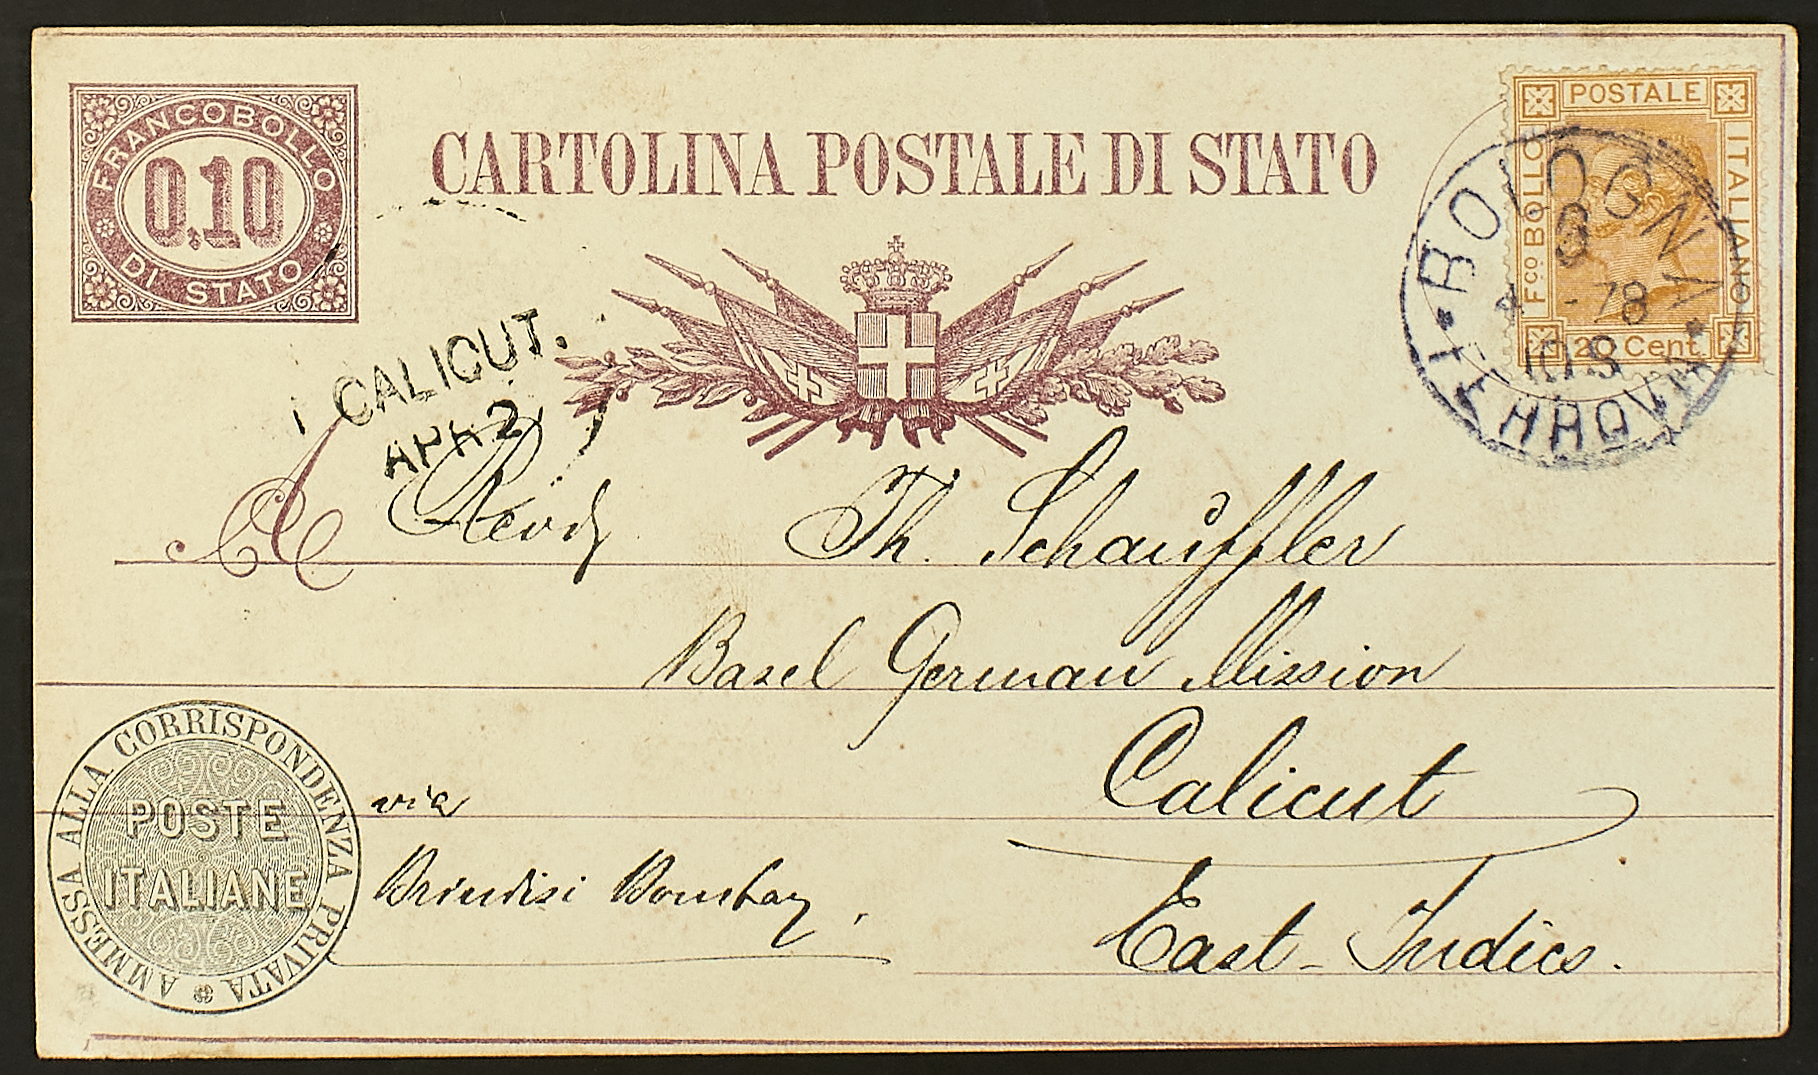 FRANCOBOLLO
0,10
DI STATO
CARTOLINA POSTALE DI STATO
POSTALE
ITALIANO
Fco BOLLO
20 Cent.
BOLOGNA
8
4 - 78
10 S
FERROVIA
CALICUT.
AP 2
A Revd Th. Schauffler
Basel German Mission
Calicut
East-Indies.
via
Brindisi Bombay.
AMMESSA ALLA CORRISPONDENZA PRIVATA
POSTE
ITALIANE